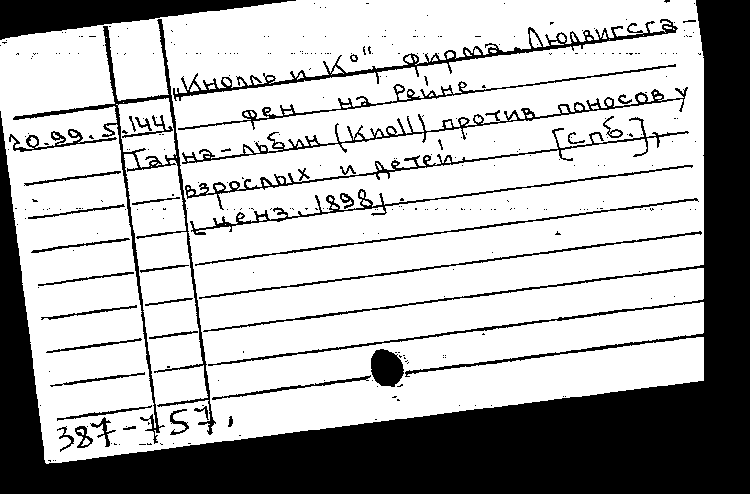 „Кнолль и К°", фирма. Людвигсга-
фен на Рейне.
20.99.5.144.
Танна-льбин (Knoll) против поносов у
взрослых и детей. [Спб.],
[ценз. 1898].
387-757.